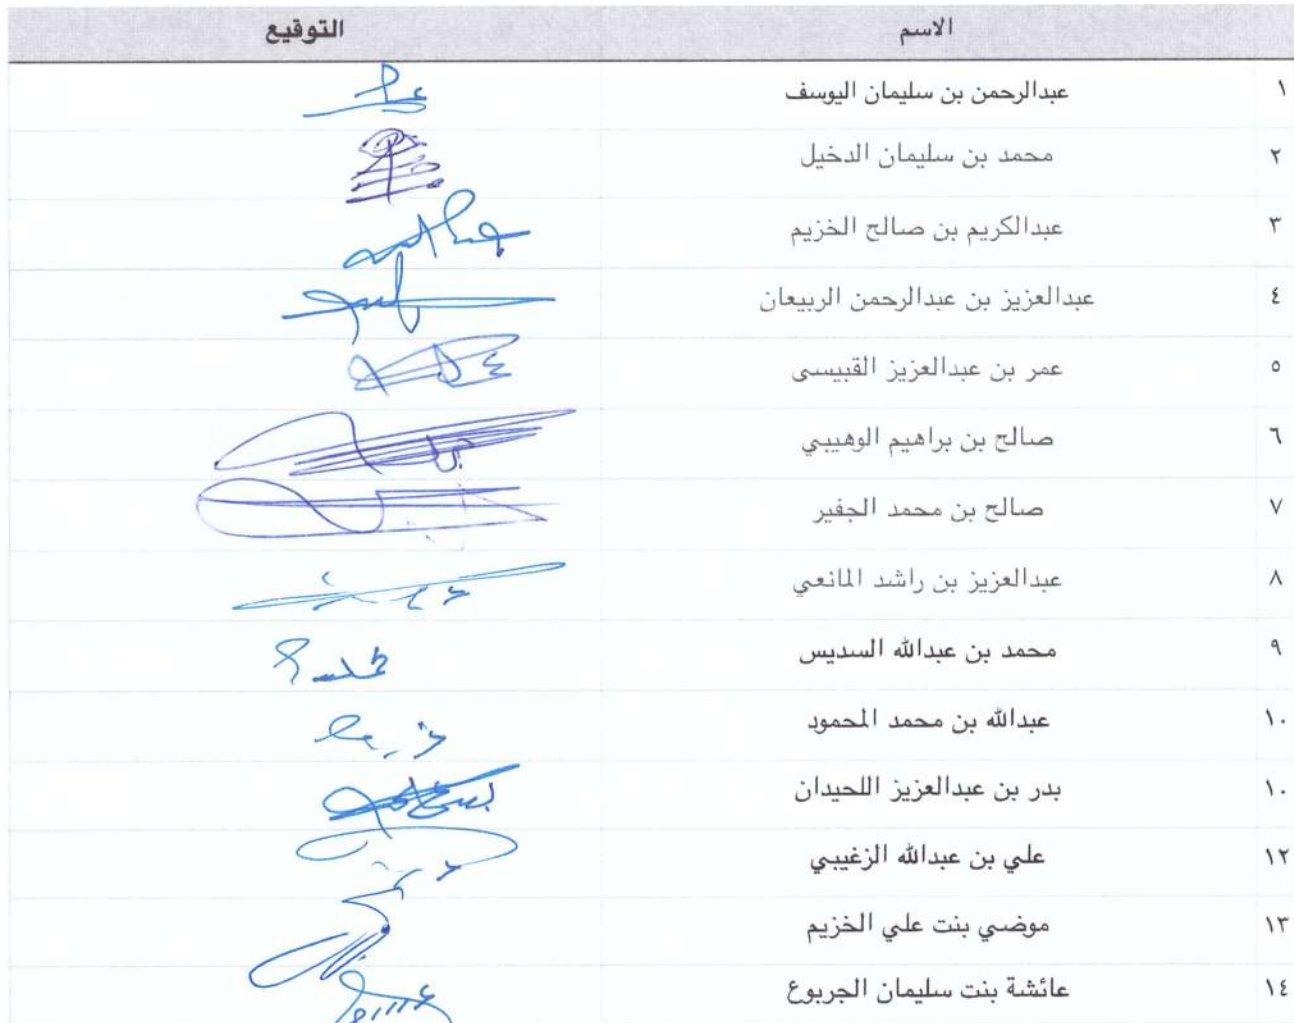 الاسم التوقيع
١ عبدالرحمن بن سليمان اليوسف
٢ محمد بن سليمان الدخيل
٣ عبدالكريم بن صالح الخزيم
٤ عبدالعزيز بن عبدالرحمن الربيعان
٥ عمر بن عبدالعزيز القبيسى
٦ صالح بن براهيم الوهيبي
٧ صالح بن محمد الجفير
٨ عبدالعزيز بن راشد المانعي
٩ محمد بن عبدالله السديس
١٠ عبدالله بن محمد المحمود
١٠ بدر بن عبدالعزيز اللحيدان
١٢ علي بن عبدالله الزغيبي
١٣ موضي بنت علي الخزيم
١٤ عائشة بنت سليمان الجربوع